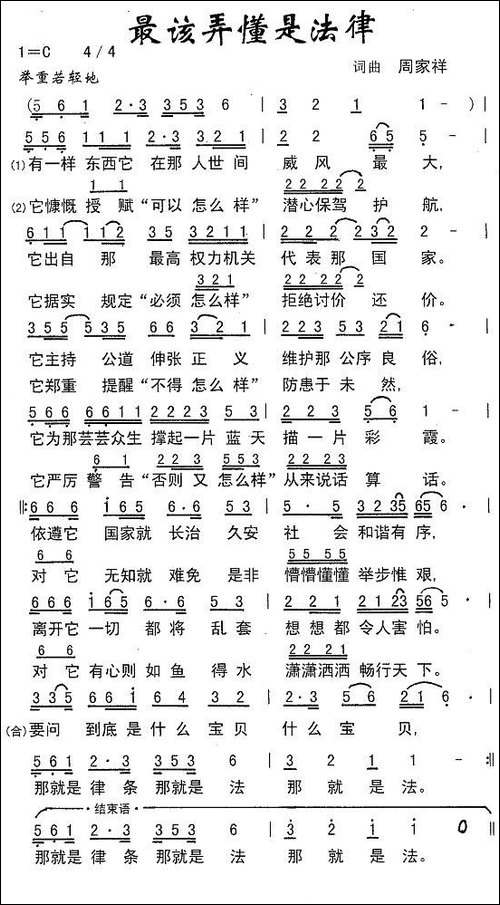 最该弄懂是法律
1=C 4/4
词曲 周家祥
举重若轻地
(5 6 1 2·3 3 5 3 6 | 3 2 1 1 - ) |
5 5 6 1 1 1 2·3 3 2 1 | 2 2 6 5 5 - |
(1)有一样 东西它 在那 人世间 威风 最大,
1 1 2 2 2 2 2
(2)它慷慨 授赋“可以 怎么样” 潜心保驾 护航,
6 1 1 1 1 2 3 5 3 2 1 1 | 2 2 2 2 2 3 2 2 |
它出自 那 最高 权力机关 代表那 国家。
3 2 1 2 2 2 2
它据实 规定“必须 怎么样” 拒绝讨价 还价。
3 5 5 5 3 5 6·6 3 2 1 | 3 5 5 5 3 2 1 6· |
它主持 公道 伸张 正义 维护那 公序良俗,
它郑重 提醒“不得 怎么样” 防患于 未然,
5 6 6 6 6 1 1 2 2 2 3 5 3 | 2 2 3 5 6 5· |
它为那芸芸众生 撑起一片 蓝天 描一片 彩霞。
6 1 2 2 3 5 5 3 3 5 5 3
它严厉 警告“否则 又 怎么样” 从来说话 算话。
𝄆 6 6 6 i 6 5 6·6 5 3 | 5·5 3 2 3 5 6 5 6· |
依遵它 国家就 长治 久安 社会 和谐有序,
6 6 5 5 5 5
对它 无知就 难免 是非 懵懵懂懂 举步惟艰,
6 6 6 i 6 5 6·6 5 3 | 2 2 1 2 1 2 3 5 6 5· |
离开它 一切 都将 乱套 想想都 令人害怕。
6 6 5 5 5 3
对它 有心则 如鱼 得水 潇潇洒洒 畅行天下。
3 3 5 6 6 1 6 4 3 2 | 2·3 5 6 2 1 6· |
(合)要问 到底是什么宝贝 什么宝贝,
5 6 1 2·3 3 5 3 6 | 3 2 1 1 - :𝄇
那就是 律条 那就是 法 那就是法。
结束语
5 6 1 2·3 3 5 3 6 | 3 2 i i 0 ‖
那就是 律条 那就是 法 那就是法律。